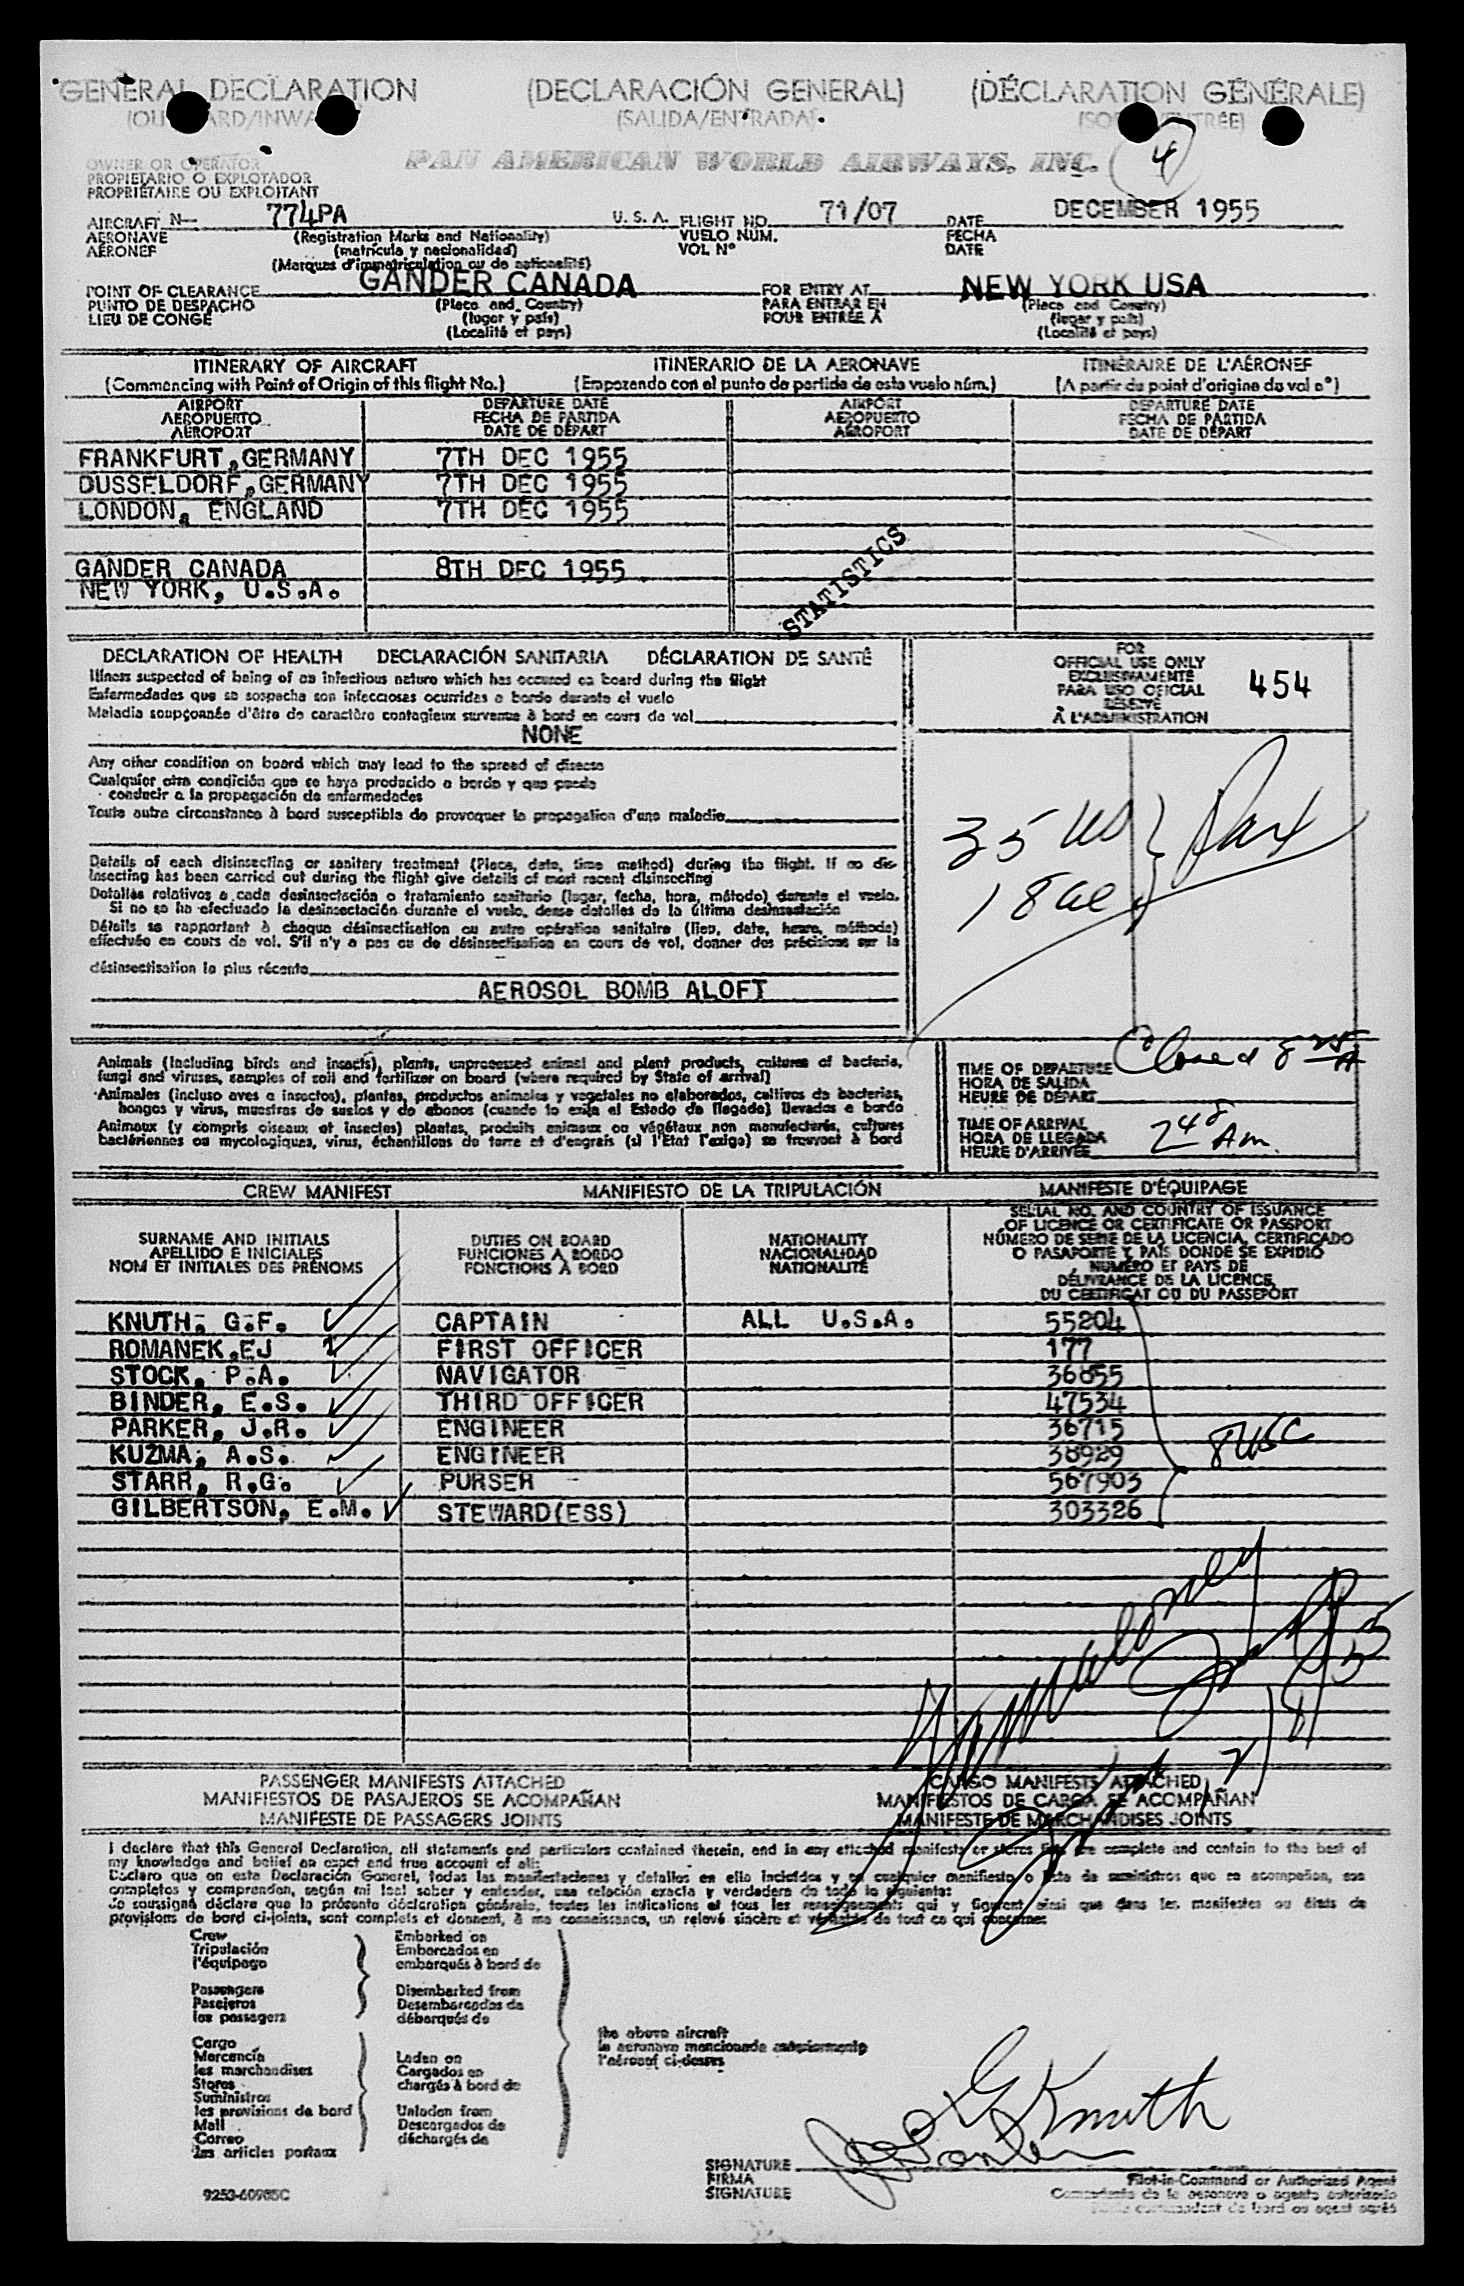 GENERAL DECLARATION (DECLARACIÓN GENERAL) (DÉCLARATION GÉNÉRALE)
(SALIDA/ENTRADA)
4
OWNER OR OPERATOR
PROPIETARIO O EXPLOTADOR
PROPRIÉTAIRE OU EXPLOITANT
PAN AMERICAN WORLD AIRWAYS, INC.
AIRCRAFT N— 774PA U. S. A. FLIGHT NO. 71/07 DATE DECEMBER 1955
AERONAVE (Registration Marks and Nationality) VUELO NÚM. FECHA
AÉRONEF (matrícula y nacionalidad) VOL N° DATE
(Marques d'immatriculation ou de nationalité)
POINT OF CLEARANCE GANDER CANADA FOR ENTRY AT NEW YORK USA
PUNTO DE DESPACHO (Place and Country) PARA ENTRAR EN (Place and Country)
LIEU DE CONGÉ (lugar y país) POUR ENTRÉE À (lugar y país)
(Localité et pays) (Localité et pays)
ITINERARY OF AIRCRAFT ITINERARIO DE LA AERONAVE ITINÉRAIRE DE L'AÉRONEF
(Commencing with Point of Origin of this flight No.) (Empezando con el punto de partida de este vuelo núm.) (A partir du point d'origine du vol n°)
AIRPORT DEPARTURE DATE AIRPORT DEPARTURE DATE
AEROPUERTO FECHA DE PARTIDA AEROPUERTO FECHA DE PARTIDA
AÉROPORT DATE DE DÉPART AÉROPORT DATE DE DÉPART
FRANKFURT,GERMANY 7TH DEC 1955
DUSSELDORF,GERMANY 7TH DEC 1955
LONDON, ENGLAND 7TH DEC 1955
GANDER CANADA 8TH DEC 1955
NEW YORK, U.S.A.
STATISTICS
DECLARATION OF HEALTH DECLARACIÓN SANITARIA DÉCLARATION DE SANTÉ
Illness suspected of being of an infectious nature which has occured on board during the flight
Enfermedades que se sospecha son infecciosas ocurridas a bordo durante el vuelo
Maladie soupçonnée d'être de caractère contagieux survenue à bord en cours de vol
NONE
Any other condition on board which may lead to the spread of disease
Cualquier otra condición que se haya producido a bordo y que pueda
conducir a la propagación de enfermedades
Toute autre circonstance à bord susceptible de provoquer la propagation d'une maladie
Details of each disinsecting or sanitary treatment (Place, date, time method) during the flight. If no dis-
insecting has been carried out during the flight give details of most recent disinsecting
Detalles relativos a cada desinsectación o tratamiento sanitario (lugar, fecha, hora, método) durante el vuelo.
Si no se ha efectuado la desinsectación durante el vuelo, dense detalles de la última desinsectación
Détails se rapportant à chaque désinsectisation ou autre opération sanitaire (lieu, date, heure, méthode)
effectuée en cours de vol. S'il n'y a pas eu de désinsectisation en cours de vol, donner des précisions sur la
désinsectisation la plus récente
AEROSOL BOMB ALOFT
FOR
OFFICIAL USE ONLY
EXCLUSIVAMENTE
PARA USO OFICIAL
RÉSERVÉ
À L'ADMINISTRATION
454
35 US
18 ae
Animals (including birds and insects), plants, unprocessed animal and plant products, cultures of bacteria,
fungi and viruses, samples of soil and fertilizer on board (where required by State of arrival)
Animales (incluso aves e insectos), plantas, productos animales y vegetales no elaborados, cultivos de bacterias,
hongos y virus, muestras de suelos y de abonos (cuando lo exija el Estado de llegada) llevados a bordo
Animaux (y compris oiseaux et insectes) plantes, produits animaux ou végétaux non manufacturés, cultures
bactériennes ou mycologiques, virus, échantillons de terre et d'engrais (si l'État l'exige) se trouvant à bord
Closed 8 25 A
TIME OF DEPARTURE
HORA DE SALIDA
HEURE DE DÉPART
TIME OF ARRIVAL
HORA DE LLEGADA
HEURE D'ARRIVÉE
7 48 Am.
CREW MANIFEST MANIFIESTO DE LA TRIPULACIÓN MANIFESTE D'ÉQUIPAGE
SURNAME AND INITIALS
APELLIDO E INICIALES
NOM ET INITIALES DES PRÉNOMS
DUTIES ON BOARD
FUNCIONES A BORDO
FONCTIONS À BORD
NATIONALITY
NACIONALIDAD
NATIONALITÉ
SERIAL NO. AND COUNTRY OF ISSUANCE
OF LICENCE OR CERTIFICATE OR PASSPORT
NÚMERO DE SERIE DE LA LICENCIA, CERTIFICADO
O PASAPORTE Y PAÍS DONDE SE EXPIDIÓ
NUMÉRO ET PAYS DE
DÉLIVRANCE DE LA LICENCE,
DU CERTIFICAT OU DU PASSEPORT
KNUTH, G.F. CAPTAIN ALL U.S.A. 55204
ROMANEK.EJ FIRST OFFICER 177
STOCK, P.A. NAVIGATOR 36855
BINDER, E.S. THIRD OFFICER 47534
PARKER, J.R. ENGINEER 36715
KUZMA, A.S. ENGINEER 38929
STARR, R.G. PURSER 567903
GILBERTSON, E.M. STEWARD(ESS) 303326
8 USC
PASSENGER MANIFESTS ATTACHED CARGO MANIFESTS ATTACHED
MANIFIESTOS DE PASAJEROS SE ACOMPAÑAN MANIFIESTOS DE CARGA SE ACOMPAÑAN
MANIFESTE DE PASSAGERS JOINTS MANIFESTE DE MARCHANDISES JOINTS
I declare that this General Declaration, all statements and particulars contained therein, and in any attached manifests or stores lists are complete and contain to the best of
my knowledge and belief an exact and true account of all:
Declaro que en esta Declaración General, todas las manifestaciones y detalles en ella incluídos y en cualquier manifiesto o lista de suministros que se acompañan, son
completos y comprenden, según mi leal saber y entender, una relación exacta y verdadera de todo lo siguiente:
Je soussigné déclare que la présente déclaration générale, toutes les indications et tous les renseignements qui y figurent ainsi que dans les manifestes ou états de
provisions de bord ci-joints, sont complets et donnent, à ma connaissance, un relevé sincère et véritable de tout ce qui concerne:
Crew Embarked on
Tripulación Embarcados en
l'équipage embarqués à bord de
Passengers Disembarked from
Pasajeros Desembarcados de
les passagers débarqués de
the above aircraft
la aeronave mencionada anteriormente
l'aéronef ci-dessus
Cargo
Mercancía Laden on
les marchandises Cargados en
Stores chargés à bord de
Suministros
les provisions de bord Unladen from
Mail Descargados de
Correo déchargés de
les articles postaux
G Knuth
SIGNATURE
FIRMA
SIGNATURE
Pilot-in-Command or Authorized Agent
Comandante de la aeronave o agente autorizado
9253-60985C